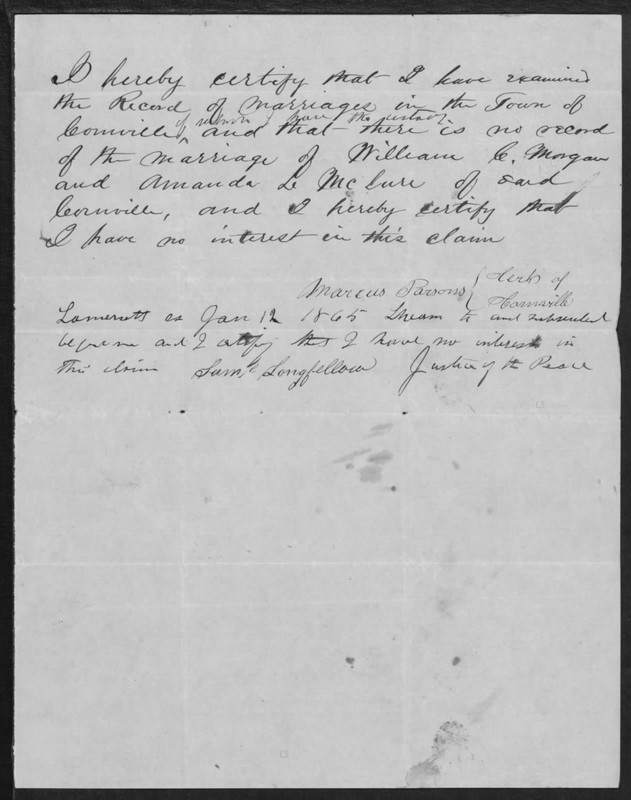 I hereby certify that I have examined
the Record of Marriages in the Town of
Cornville of which I have the custody
and that there is no record
of the marriage of William C. Morgan
and Amanda Le McLure of said
Cornville, and I hereby certify that
I have no interest in this claim
Marcus Parsons { Clerk of
Cornville
Somersett ss Jan 12 1865 Sworn to and subscribed
before me and I certify that I have no interest in
this claim Saml Longfellow Justice of the Peace